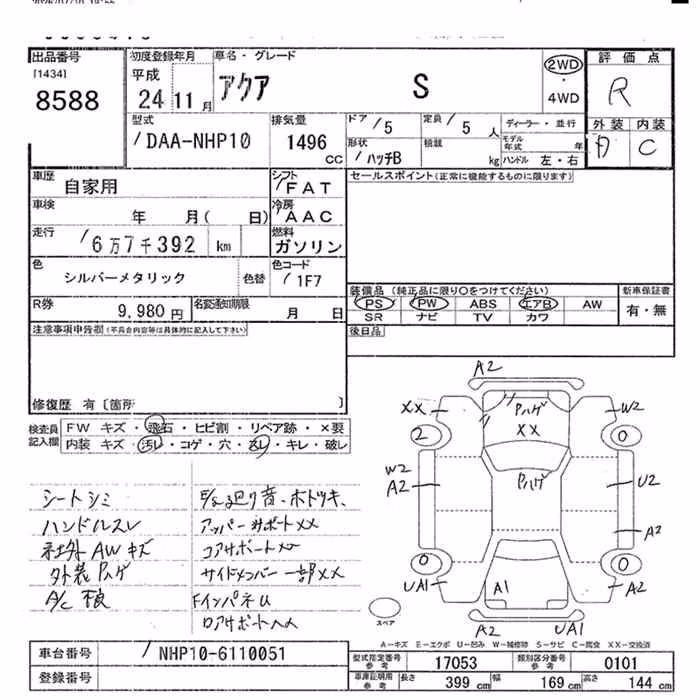 出品番号
[1434]
8588
初度登録年月
平成
24 11 月
車名・グレード
アクア S
2WD
・
4WD
評価点
R
外装 内装
A C
型式
/DAA-NHP10
排気量
1496
CC
ドア /5
定員 /5 人
形状
/ハッチB
積載 kg
ディーラー・並行
モデル年式 年
ハンドル 左・右
車歴
自家用
シフト
/FAT
車検
年 月( 日)
冷房
/AAC
走行
/6万7千392 km
燃料
ガソリン
色
シルバーメタリック
色替
色コード
/1F7
R券
9,980 円
名変通知期限
月 日
セールスポイント(正常に機能するものに限ります)
装備品 (純正品に限り○をつけてください)
PS PW ABS エアB AW
SR ナビ TV カワ
新車保証書
有・無
後日品
注意事項申告欄(不具合内容等は具体的に記入して下さい)
修復歴 有 [箇所 ]
検査員記入欄
FW キズ・飛石・ヒビ割・リペア跡・×要
内装 キズ・汚レ・コゲ・穴・スレ・キレ・破レ
シートシミ
ハンドルスレ
社外AWキズ
外装Pハゲ
A/C 不良
音・ホドツキ
アッパーサポートXX
コアサポートXX
サイドメンバー一部XX
FインパネU
ロアサポートXX
A2
XX
Pハゲ
XX
W2
2
0
Pハゲ
W2
A2
U2
A2
0
0
UA1
A1
A2
A2
UA1
スペア
A-キズ E-エクボ U-凹み W-補修跡 S-サビ C-腐食 XX-交換済
車台番号
/NHP10-6110051
登録番号
型式指定番号
参考
17053
類別区分番号
参考
0101
車庫証明用
参考
長さ 399 cm
幅 169 cm
高さ 144 cm